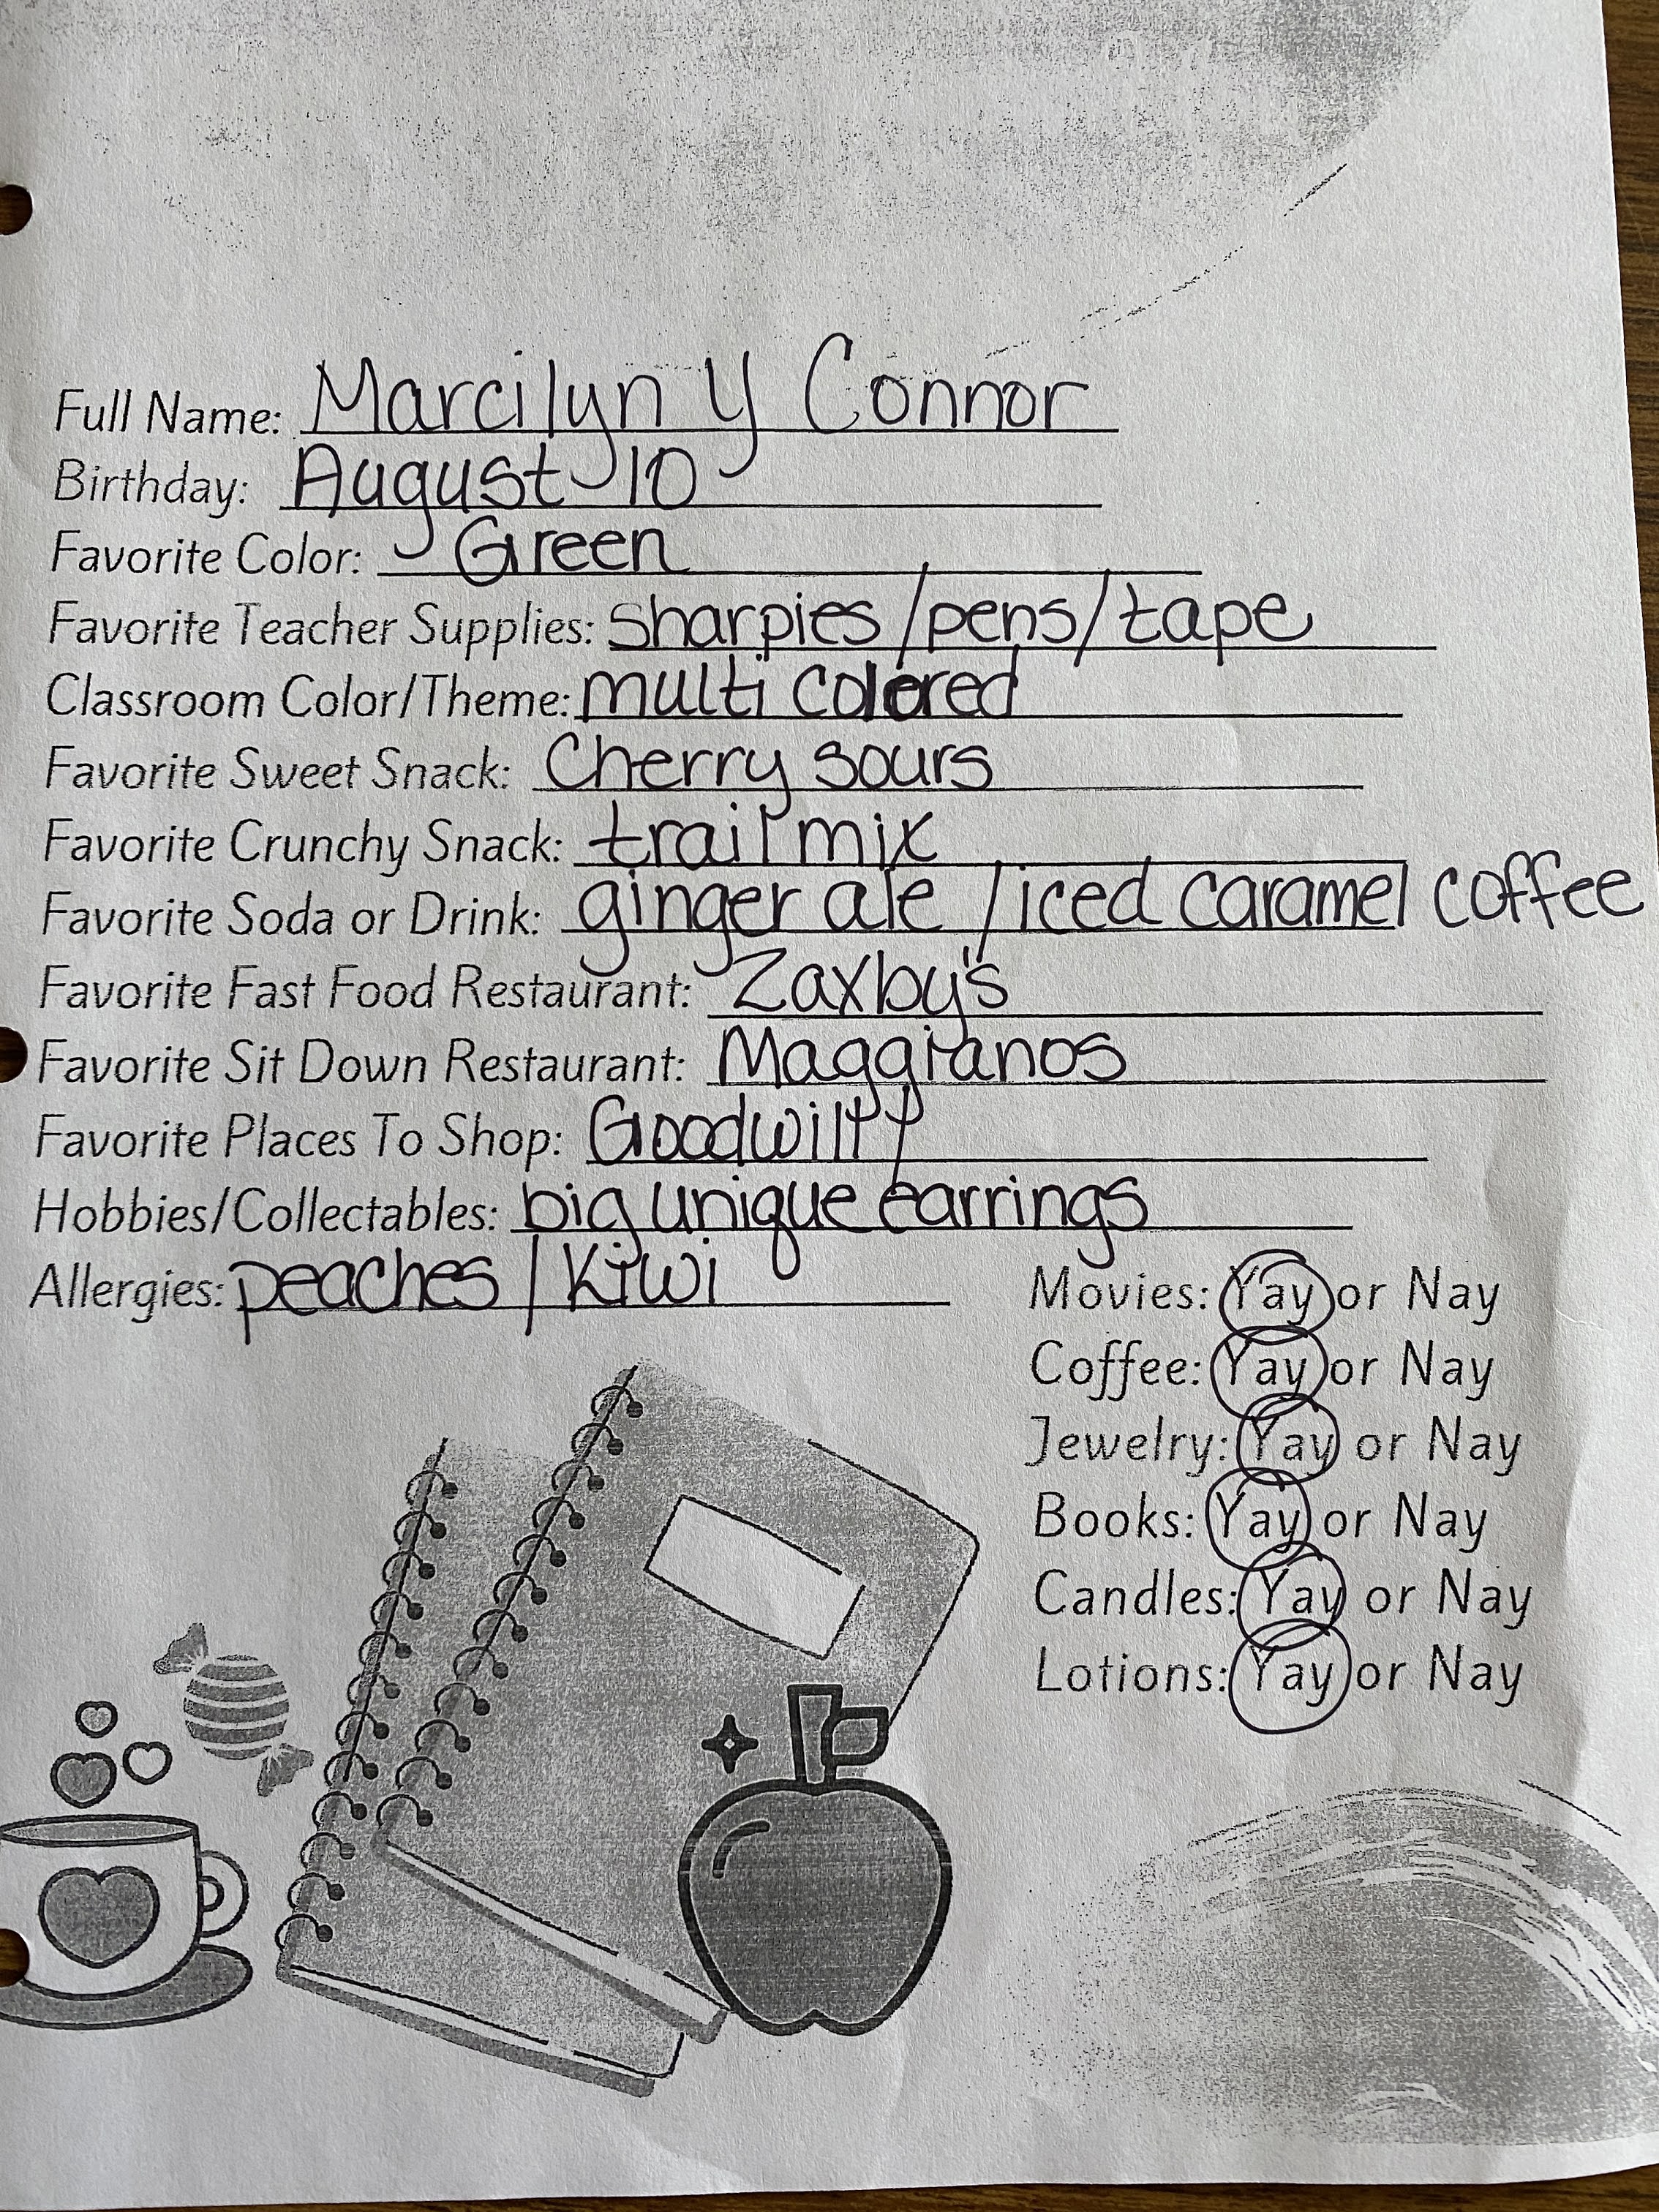 Full Name: Marcilyn Y Connor
Birthday: August 10
Favorite Color: Green
Favorite Teacher Supplies: Sharpies /pens/tape
Classroom Color/Theme: multi colored
Favorite Sweet Snack: Cherry sours
Favorite Crunchy Snack: trail mix
Favorite Soda or Drink: ginger ale /iced caramel coffee
Favorite Fast Food Restaurant: Zaxby's
Favorite Sit Down Restaurant: Maggianos
Favorite Places To Shop: Goodwill
Hobbies/Collectables: big unique earrings
Allergies: peaches / Kiwi
Movies: Yay or Nay
Coffee: Yay or Nay
Jewelry: Yay or Nay
Books: Yay or Nay
Candles: Yay or Nay
Lotions: Yay or Nay